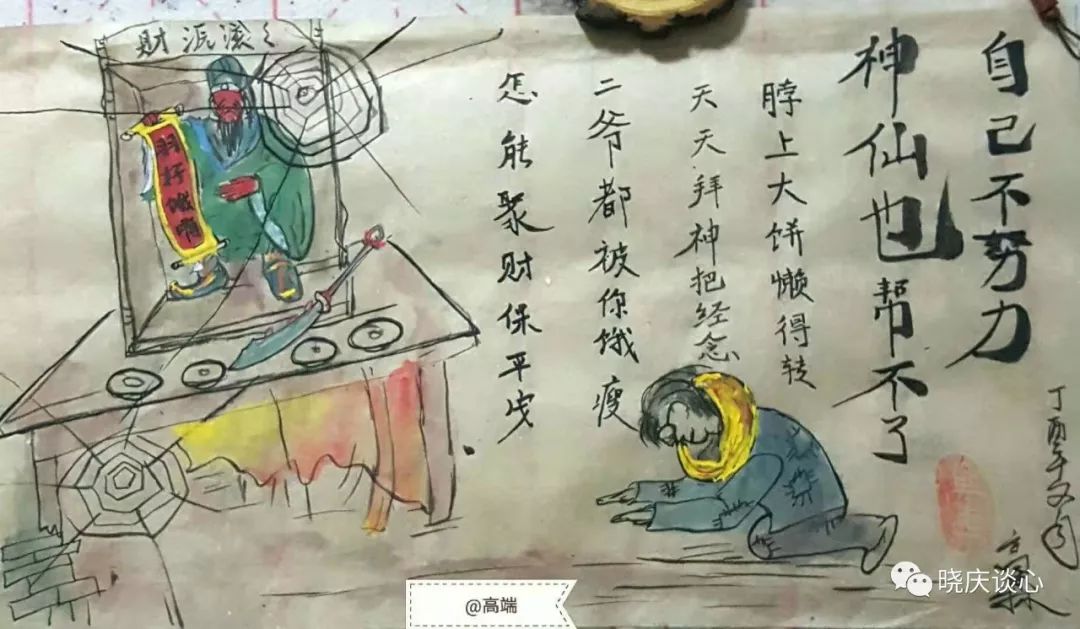 自己不努力
神仙也帮不了
脖上大饼懒得转
天天拜神把经念
二爷都被你饿瘦
怎能聚财保平安
丁酉年
财源滚々
羽好饿啊
@高端
晓庆谈心